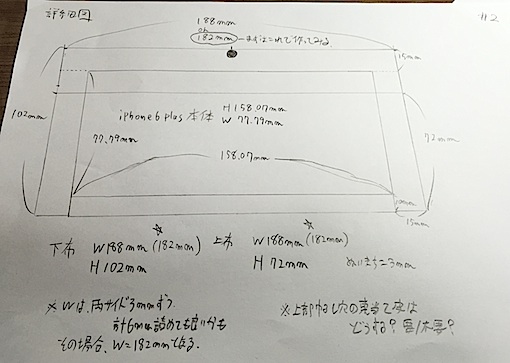 詳細図
#2
188mm
or
182mm → まずはこれで作ってみる。
15mm
102mm
iphone6 plus 本体 H 158.07mm
W 77.79mm
77.79mm
72mm
158.07mm
15mm
下布 W188mm (182mm)
H 102mm
上布 W188mm (182mm)
H 72mm
ぬいしろ=3mm
※Wは、両サイド3mmずつ
計6mm詰めても良いかも
その場合、W=182mmで作る。
※上部ねじ穴の見当て布は
どうする?